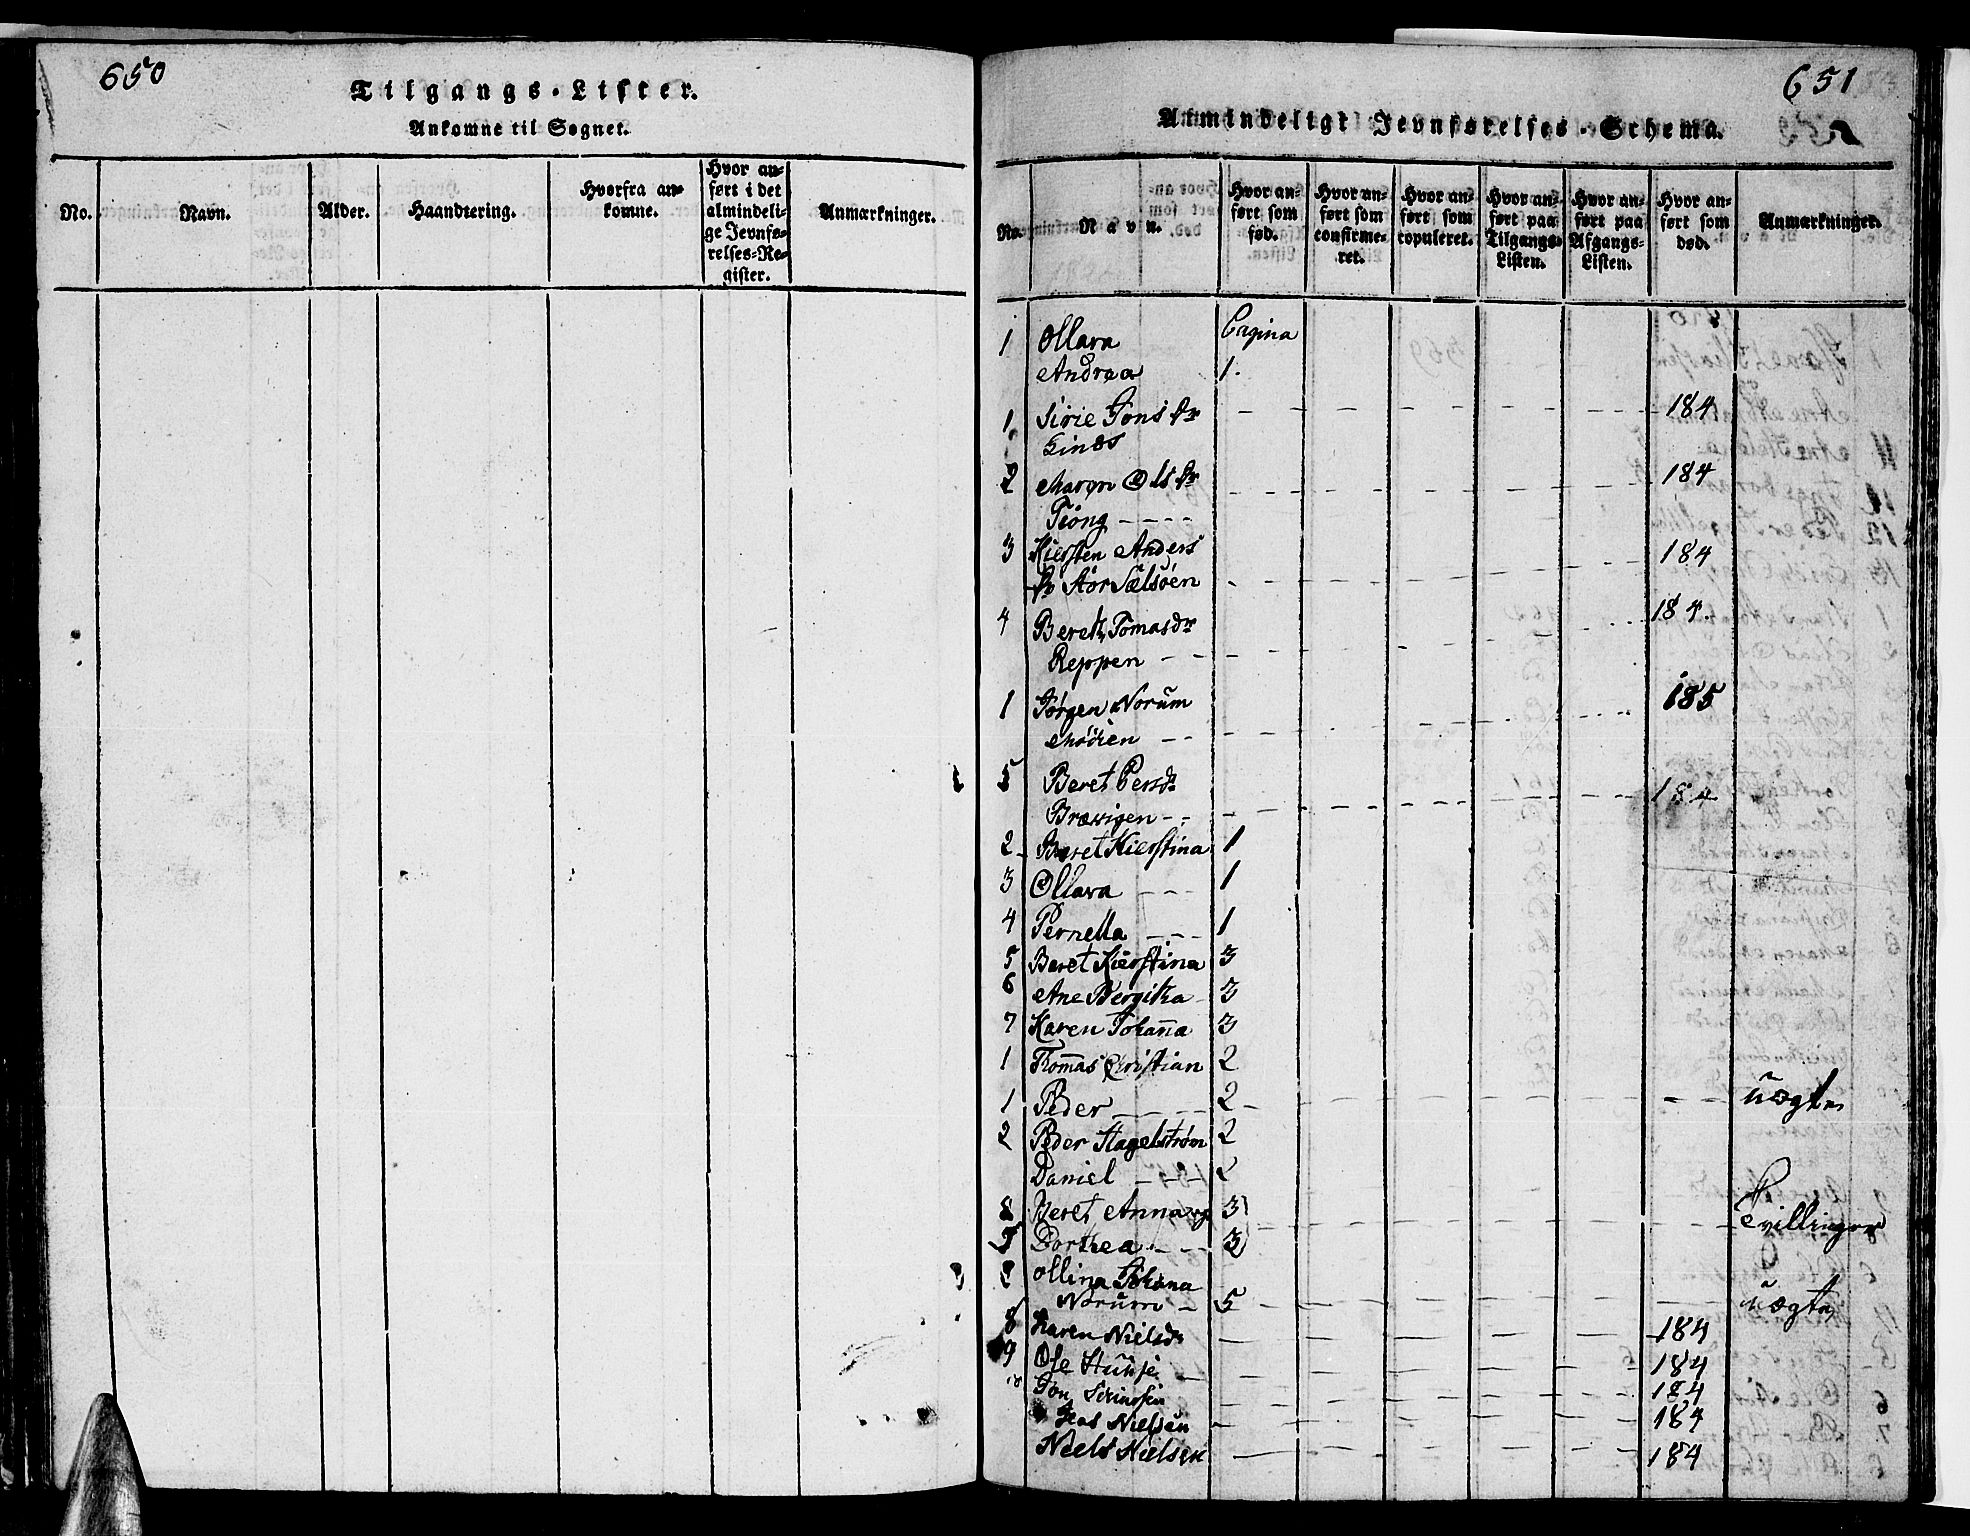 650
Tilgangs-Lister.
Ankomne til Sognet.
No. Navn. Alder. Haandtering. Hvorfra ankomne. Hvor anført i det almindelige Jevnførelses-Register. Anmærkninger.
651
Almindeligt Jevnførelses-Schema.
No. Navn. Hvor anført som fød. Hvor anført som confirmeret. Hvor anført som copuleret. Hvor anført paa Tilgangs-Listen. Hvor anført paa Afgangs-Listen. Hvor anført som død. Anmærkninger.
1 Ollava Pagina
Andrea 1.
1 Sirie Jons Dr - - - 184
Linds
2 Maren Ols Dr - - - 184
Tiong - - - -
3 Kiersten Anders 184
Dr StorSælsöen - - -
4 Beret Tomasdr - - - 184.
Reppen - - -
1 Jørgen Norum 185
Modien - - -
5 Beret Persdr 184
Brævigen - - -
2 Beret Kierstina 1
3 Ollava - - - 1
4 Pernella - - - 1
5 Beret Kierstina 3
6 Ane Bergitha 3
7 Karen Johanna 3
1 Thomas Christian 2
1 Peder - - - 2 - - - uægte
2 Peder Hagelstrøm 2
Daniel - - - 2
8 Beret Anna og 3) - - - Tvillinger
9 Dorthea - - - 3)
Ollina Johana
Norum - 5 - - - uægte
8 Karen Nielsdr - - - 184
9 Ole - - - 184
10 Jon - - - 184
Nielsen - - - 184
Niels Nielsen - - - 184